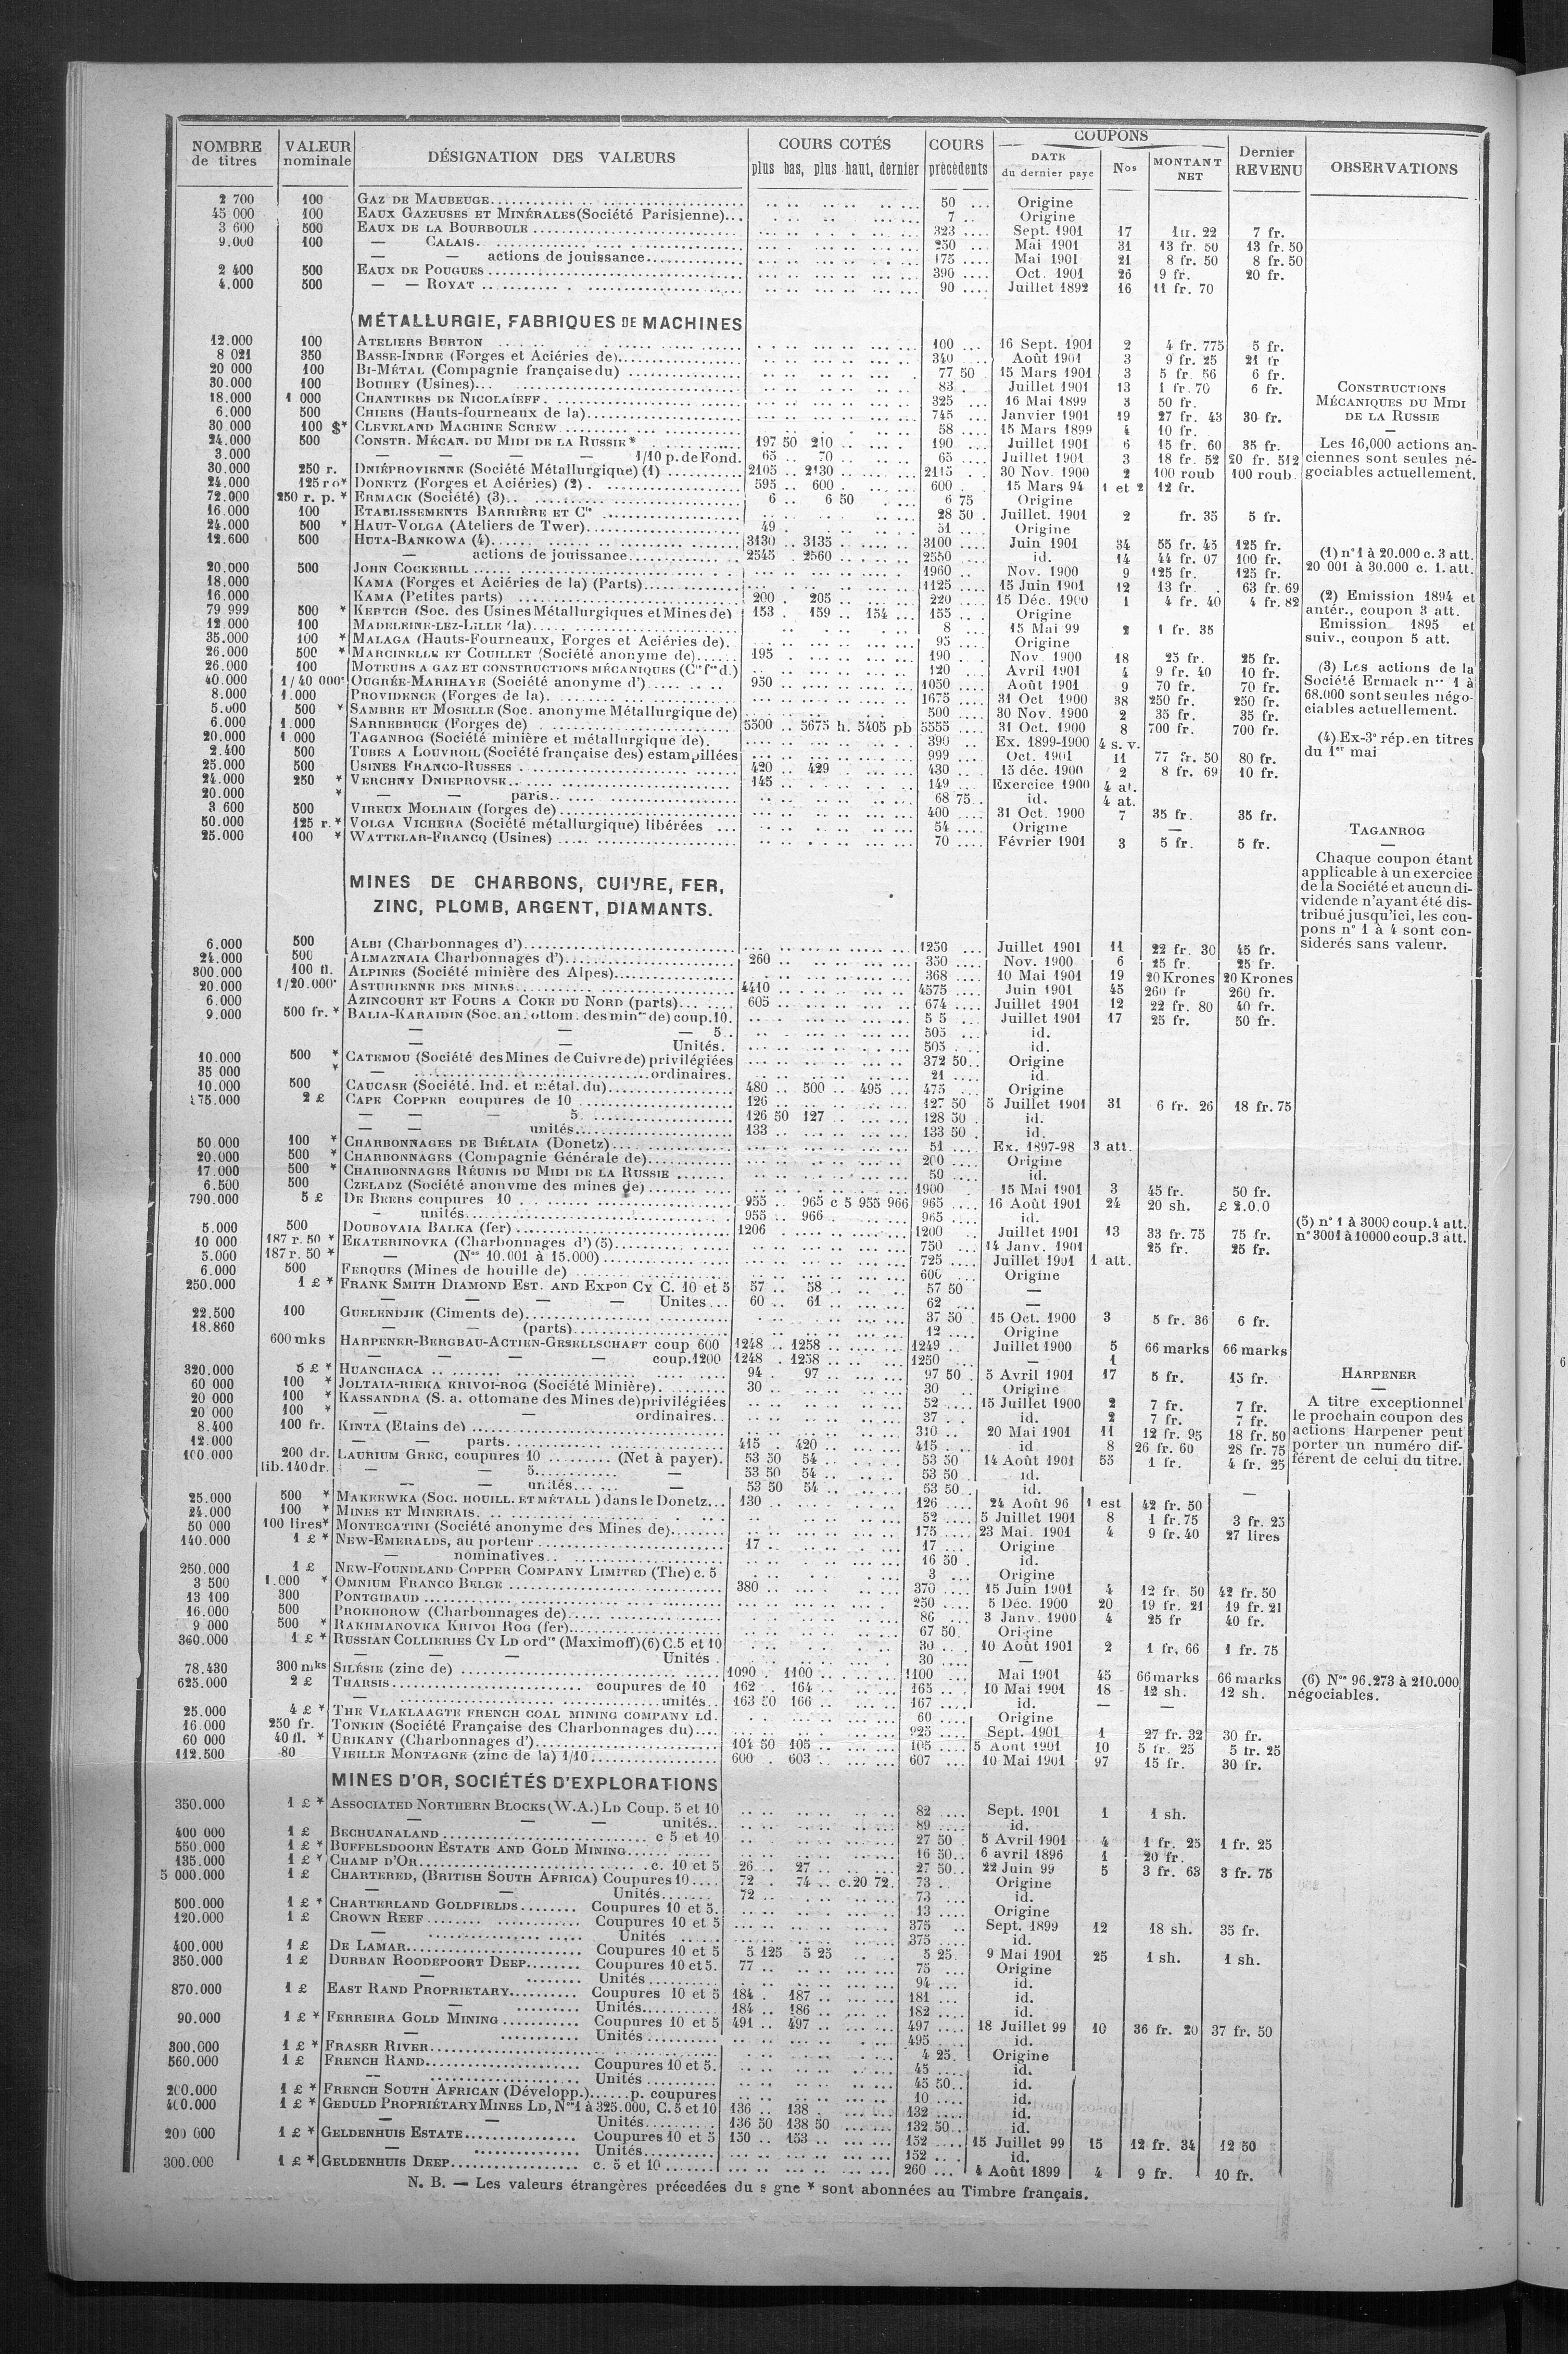 NOMBRE de titres | VALEUR nominale | DÉSIGNATION DES VALEURS | COURS COTÉS plus bas, plus haut, dernier | COURS précédents | COUPONS DATE du dernier payé | Nos | MONTANT NET | Dernier REVENU | OBSERVATIONS
2 700 100 GAZ DE MAUBEUGE 50 Origine
45 000 100 EAUX GAZEUSES ET MINÉRALES (Société Parisienne) 7 Origine
3 600 500 EAUX DE LA BOURBOULE 323 Sept. 1901 17 22 7 fr.
9.000 100 — CALAIS 250 Mai 1901 31 13 fr. 50 13 fr. 50
— — actions de jouissance 175 Mai 1901 21 8 fr. 50 8 fr. 50
2 400 500 EAUX DE POUGUES 390 Oct. 1901 26 9 fr. 20 fr.
4.000 500 — — ROYAT 90 Juillet 1892 16 11 fr. 70
MÉTALLURGIE, FABRIQUES DE MACHINES
12.000 100 ATELIERS BURTON 100 16 Sept. 1901 2 4 fr. 775 5 fr.
8 021 350 BASSE-INDRE (Forges et Aciéries de) 340 Août 1901 3 9 fr. 25 21 fr
20 000 100 BI-MÉTAL (Compagnie française du) 77 50 15 Mars 1901 3 5 fr. 56 6 fr.
30.000 100 BOUHEY (Usines) 83 Juillet 1901 13 1 fr. 70 6 fr.
18.000 1 000 CHANTIERS DE NICOLAÏEFF 325 16 Mai 1899 3 50 fr.
6.000 500 CHIERS (Hauts-fourneaux de la) 745 Janvier 1901 19 27 fr. 43 30 fr.
30 000 100 $* CLEVELAND MACHINE SCREW 58 15 Mars 1899 4 10 fr.
24.000 500 CONSTR. MÉCAN. DU MIDI DE LA RUSSIE* 197 50 210 190 Juillet 1901 6 15 fr. 60 35 fr.
3.000 — — — — 1/10 p. de Fond. 65 70 65 Juillet 1901 3 18 fr. 52 20 fr. 512
30.000 250 r. DNIÉPROVIENNE (Société Métallurgique) (1) 2105 2130 2115 30 Nov. 1900 2 100 roub 100 roub
24.000 125 ro* DONETZ (Forges et Aciéries) (2) 595 600 600 15 Mars 94 1 et 2 12 fr.
72.000 250 r. p. * ERMACK (Société) (3) 6 6 50 6 75 Origine
16.000 100 ETABLISSEMENTS BARRIÈRE ET Cie 28 50 Juillet. 1901 2 fr. 35 5 fr.
24.000 500 * HAUT-VOLGA (Ateliers de Twer) 49 51 Origine
12.600 500 HUTA-BANKOWA (4) 3130 3135 3100 Juin 1901 34 55 fr. 45 125 fr.
— actions de jouissance 2545 2560 2550 id. 14 44 fr. 07 100 fr.
20.000 500 JOHN COCKERILL 1960 Nov. 1900 9 125 fr. 125 fr.
18.000 KAMA (Forges et Aciéries de la) (Parts) 1125 15 Juin 1901 12 13 fr. 63 fr. 69
16.000 KAMA (Petites parts) 200 205 220 15 Déc. 1900 1 4 fr. 40 4 fr. 82
79 999 500 * KERTCH (Soc. des Usines Métallurgiques et Mines de) 153 159 154 155 Origine
12.000 100 MADELEINE-LEZ-LILLE (la) 8 15 Mai 99 2 1 fr. 35
35.000 100 * MALAGA (Hauts-Fourneaux, Forges et Aciéries de) 95 Origine
26.000 500 * MARCINELLE ET COUILLET (Société anonyme de) 195 190 Nov. 1900 18 25 fr. 25 fr.
26.000 100 MOTEURS A GAZ ET CONSTRUCTIONS MÉCANIQUES (Cie fse d.) 120 Avril 1901 4 9 fr. 40 10 fr.
40.000 1/40 000e OUGRÉE-MARIHAYE (Société anonyme d') 950 1050 Août 1901 9 70 fr. 70 fr.
8.000 1.000 PROVIDENCE (Forges de la) 1675 31 Oct 1900 38 250 fr. 250 fr.
5.000 500 * SAMBRE ET MOSELLE (Soc. anonyme Métallurgique de) 500 30 Nov. 1900 2 35 fr. 35 fr.
6.000 1.000 SARREBRUCK (Forges de) 5500 5675 h. 5405 pb 5555 31 Oct. 1900 8 700 fr. 700 fr.
20.000 1.000 TAGANROG (Société minière et métallurgique de) 390 Ex. 1899-1900 4 s. v.
2.400 500 TUBES A LOUVROIL (Société française des) estampillées 999 Oct. 1901 11 77 fr. 50 80 fr.
25.000 500 USINES FRANCO-RUSSES 420 429 430 15 déc. 1900 2 8 fr. 69 10 fr.
24.000 250 * VERCHNY DNIEPROVSK 145 149 Exercice 1900 4 at.
20.000 * — — paris 68 75 id. 4 at.
3 600 500 VIREUX MOLHAIN (forges de) 400 31 Oct. 1900 7 35 fr. 35 fr.
50.000 125 r. * VOLGA VICHERA (Société métallurgique) libérées 54 Origine —
25.000 100 * WATTELAR-FRANCQ (Usines) 70 Février 1901 3 5 fr. 5 fr.
CONSTRUCTIONS
MÉCANIQUES DU MIDI
DE LA RUSSIE
—
Les 16,000 actions anciennes sont seules négociables actuellement.
(1) n° 1 à 20.000 c. 3 att.
20 001 à 30.000 c. 1. att.
(2) Emission 1894 et
antér., coupon 3 att.
Emission 1895 et
suiv., coupon 5 att.
(3) Les actions de la
Société Ermack nos 1 à
68.000 sont seules négo-
ciables actuellement.
(4) Ex-3e rép. en titres
du 1er mai
TAGANROG
—
Chaque coupon étant
applicable à un exercice
de la Société et aucun di-
vidende n'ayant été dis-
tribué jusqu'ici, les cou-
pons n° 1 à 4 sont con-
siderés sans valeur.
MINES DE CHARBONS, CUIVRE, FER,
ZINC, PLOMB, ARGENT, DIAMANTS.
6.000 500 ALBI (Charbonnages d') 1250 Juillet 1901 11 22 fr. 30 45 fr.
24.000 500 ALMAZNAIA Charbonnages d') 260 350 Nov. 1900 6 25 fr. 25 fr.
300.000 100 fl. ALPINES (Société minière des Alpes) 368 10 Mai 1901 19 20 Krones 20 Krones
20.000 1/20.000e ASTURIENNE DES MINES 4410 4575 Juin 1901 45 260 fr 260 fr.
6.000 AZINCOURT ET FOURS A COKE DU NORD (parts) 605 674 Juillet 1901 12 22 fr. 80 40 fr.
9.000 500 fr. * BALIA-KARAIDIN (Soc. an. ottom. des mines de) coup. 10. 5 5 Juillet 1901 17 25 fr. 50 fr.
— — — 5 505 id.
— — Unités. 505 id.
10.000 500 * CATEMOU (Société des Mines de Cuivre de) privilégiées 372 50 Origine
35 000 * — ordinaires. 21 id.
10.000 500 CAUCASE (Société. Ind. et métal. du) 480 500 495 475 Origine
175.000 2 £ CAPE COPPER coupures de 10 126 127 50 5 Juillet 1901 31 6 fr. 26 18 fr. 75
— — — 5. 126 50 127 128 50 id.
— — unités 133 133 50 id.
50.000 100 * CHARBONNAGES DE BIÉLAIA (Donetz) 51 Ex. 1897-98 3 att.
20.000 500 * CHARBONNAGES (Compagnie Générale de) 200 Origine
17.000 500 * CHARBONNAGES RÉUNIS DU MIDI DE LA RUSSIE 50 id.
6.500 500 CZELADZ (Société anonyme des mines de) 1900 15 Mai 1901 3 45 fr. 50 fr.
790.000 5 £ DE BEERS coupures 10 955 965 c 5 955 966 965 16 Août 1901 24 20 sh. £ 2.0.0
— unités 955 966 965 id.
5.000 500 DOUBOVAIA BALKA (fer) 1206 1200 Juillet 1901 13 33 fr. 75 75 fr.
10 000 187 r. 50 * EKATERINOVKA (Charbonnages d') (5) 750 14 Janv. 1901 25 fr. 25 fr.
5.000 187 r. 50 * — (Nos 10.001 à 15.000) 725 Juillet 1901 1 att.
6.000 500 FERQUES (Mines de houille de) 600 Origine
250.000 1 £ * FRANK SMITH DIAMOND EST. AND EXPon CY C. 10 et 5 57 58 57 50 —
— — — — Unites 60 61 62 —
22.500 100 GUELENDJIK (Ciments de) 37 50 15 Oct. 1900 3 5 fr. 36 6 fr.
18.860 — — (parts) 12 Origine
600 mks HARPENER-BERGBAU-ACTIEN-GESELLSCHAFT coup 600 1248 1258 1249 Juillet 1900 5 66 marks 66 marks
— — — — coup. 1200 1248 1258 1250 — 1
320.000 5 £ * HUANCHACA 94 97 97 50 5 Avril 1901 17 5 fr. 15 fr.
60 000 100 * JOLTAIA-RIEKA KRIVOI-ROG (Société Minière) 30 30 Origine
20 000 100 * KASSANDRA (S. a. ottomane des Mines de) privilégiées 52 15 Juillet 1900 2 7 fr. 7 fr.
20 000 100 * — — ordinaires 37 id. 2 7 fr. 7 fr.
8.400 100 fr. KINTA (Etains de) 310 20 Mai 1901 11 12 fr. 95 18 fr. 50
12.000 — — parts 415 420 415 id 8 26 fr. 60 28 fr. 75
100.000 200 dr. lib. 140 dr. LAURIUM GREC, coupures 10 (Net à payer) 53 50 54 53 50 14 Août 1901 55 1 fr. 4 fr. 25
— — 5 — 53 50 54 53 50 id.
— — unités — 53 50 54 53 50 id. —
25.000 500 * MAKEEWKA (SOC. HOUILL. ET MÉTALL) dans le Donetz 130 126 24 Août 96 1 est 42 fr. 50
24.000 100 * MINES ET MINERAIS 52 5 Juillet 1901 8 1 fr. 75 3 fr. 25
50 000 100 lires* MONTECATINI (Société anonyme des Mines de) 175 23 Mai. 1901 4 9 fr. 40 27 lires
140.000 1 £ * NEW-EMERALDS, au porteur 17 17 Origine
— nominatives 16 50 id.
250.000 1 £ NEW-FOUNDLAND COPPER COMPANY LIMITED (The) c. 5 3 Origine
3 500 1.000 * OMNIUM FRANCO BELGE 380 370 15 Juin 1901 4 12 fr. 50 42 fr. 50
13 100 300 PONTGIBAUD 250 5 Déc. 1900 20 19 fr. 21 19 fr. 21
16.000 500 PROKHOROW (Charbonnages de) 86 3 Janv. 1900 4 25 fr 40 fr.
9 000 500 * RAKHMANOVKA KRIVOI ROG (fer) 67 50 Origine
360.000 1 £ * RUSSIAN COLLIERIES CY LD ordres (Maximoff) (6) C. 5 et 10 30 10 Août 1901 2 1 fr. 66 1 fr. 75
— — — Unités 30 —
78.430 300 mks SILÉSIE (zinc de) 1090 1100 1100 Mai 1901 45 66 marks 66 marks
625.000 2 £ THARSIS coupures de 10 162 164 165 10 Mai 1901 18 12 sh. 12 sh.
— unités 163 50 166 167 id. —
25.000 4 £ * THE VLAKLAAGTE FRENCH COAL MINING COMPANY Ld. 60 Origine
16.000 250 fr. TONKIN (Société Française des Charbonnages du) 925 Sept. 1901 1 27 fr. 32 30 fr.
60 000 40 fl. * URIKANY (Charbonnages d') 104 50 105 105 5 Août 1901 10 5 fr. 25 5 fr. 25
112.500 80 VIEILLE MONTAGNE (zinc de la) 1/10 600 603 607 10 Mai 1901 97 15 fr. 30 fr.
(5) n° 1 à 3000 coup. 4 att.
n° 3001 à 10000 coup. 3 att.
HARPENER
—
A titre exceptionnel
le prochain coupon des
actions Harpener peut
porter un numéro dif-
férent de celui du titre.
(6) Nos 96.273 à 210.000
négociables.
MINES D'OR, SOCIÉTÉS D'EXPLORATIONS
350.000 1 £ * ASSOCIATED NORTHERN BLOCKS (W.A.) LD Coup. 5 et 10 82 Sept. 1901 1 1 sh.
— — unités 89 id.
400 000 1 £ BECHUANALAND c 5 et 10 27 50 5 Avril 1901 4 1 fr. 25 1 fr. 25
550.000 1 £ * BUFFELSDOORN ESTATE AND GOLD MINING 16 50 6 avril 1896 1 20 fr.
135.000 1 £ * CHAMP D'OR c. 10 et 5 26 27 27 50 22 Juin 99 5 3 fr. 63 3 fr. 75
5 000.000 1 £ CHARTERED, (BRITISH SOUTH AFRICA) Coupures 10 72 74 c. 20 72 73 Origine
— — Unités 72 73 id.
500.000 1 £ * CHARTERLAND GOLDFIELDS Coupures 10 et 5. 13 Origine
120.000 1 £ CROWN REEF Coupures 10 et 5 375 Sept. 1899 12 18 sh. 35 fr.
— Unités 375 id.
400.000 1 £ DE LAMAR Coupures 10 et 5 5 125 5 25 5 25 9 Mai 1901 25 1 sh. 1 sh.
350.000 1 £ DURBAN ROODEPOORT DEEP Coupures 10 et 5. 77 75 Origine
— Unités 94 id.
870.000 1 £ EAST RAND PROPRIETARY Coupures 10 et 5 184 187 181 id.
— Unités 184 186 182 id.
90.000 1 £ * FERREIRA GOLD MINING Coupures 10 et 5 491 497 497 18 Juillet 99 10 36 fr. 20 37 fr. 50
— Unités 495 id.
300.000 1 £ * FRASER RIVER 4 25 Origine
560.000 1 £ FRENCH RAND Coupures 10 et 5. 45 id.
— Unités 45 50 id.
200.000 1 £ * FRENCH SOUTH AFRICAN (Développ.) p. coupures 10 id.
400.000 1 £ * GEDULD PROPRIÉTARY MINES LD, Nos 1 à 325.000, C. 5 et 10 136 138 132 id.
— — Unités 136 50 138 50 132 50 id.
200 000 1 £ * GELDENHUIS ESTATE Coupures 10 et 5 150 153 152 15 Juillet 99 15 12 fr. 34 12 50
— Unités 152 id.
300.000 1 £ * GELDENHUIS DEEP c. 5 et 10 260 4 Août 1899 4 9 fr. 10 fr.
N. B. — Les valeurs étrangères précedées du s gne * sont abonnées au Timbre français.